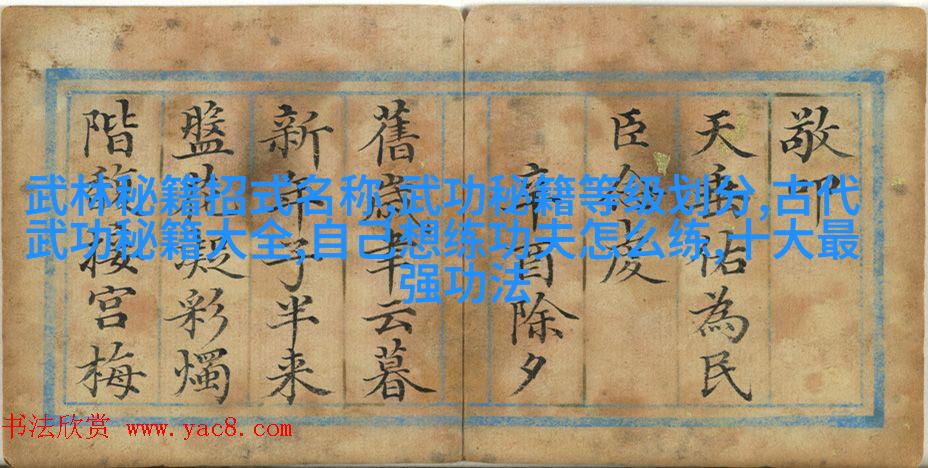 敬叩
天佑為民
臣虔
辛酉除夕
舊歲聿云暮
新年子半来
盤龍凝彩燭
階接宮梅
武林秘籍招式名称,武功秘籍等级划分,古代
武功秘籍大全,自己想练功夫怎么练,十大最
强功法
书法欣赏 www.yac8.com